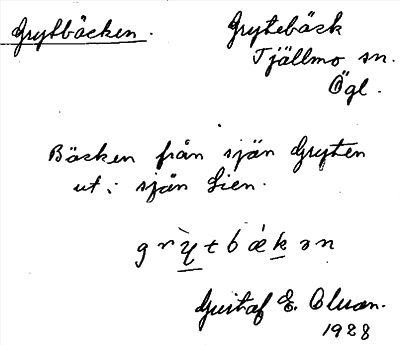 Grytbäcken.
Grytebäck
Tjällmo sn.
Ögl.
Bäcken från sjön Gryten
ut i sjön Lien.
grỳtbǽkən
Gustaf E. Olsson.
1928